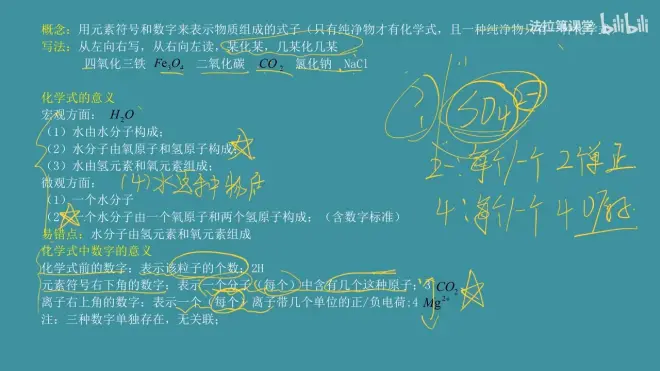 法拉第课堂 bilibili
概念：用元素符号和数字来表示物质组成的式子（只有纯净物才有化学式，且一种纯净物只有一种化学式）
写法：从左向右写，从右向左读，某化某，几某化几某
四氧化三铁 Fe₃O₄ 二氧化碳 CO₂ 氯化钠 NaCl
化学式的意义
宏观方面： H₂O
（1）水由水分子构成；
（2）水分子由氧原子和氢原子构成；
（3）水由氢元素和氧元素组成；
微观方面：
（1）一个水分子
（2）一个水分子由一个氧原子和两个氢原子构成；（含数字标准）
易错点：水分子由氢元素和氧元素组成
化学式中数字的意义
化学式前的数字：表示该粒子的个数；2H
元素符号右下角的数字：表示一个分子（每个）中含有几个这种原子；3 CO₂
离子右上角的数字：表示一个（每个）离子带几个单位的正/负电荷；4 Mg²⁺
注：三种数字单独存在，无关联；
SO₄²⁻